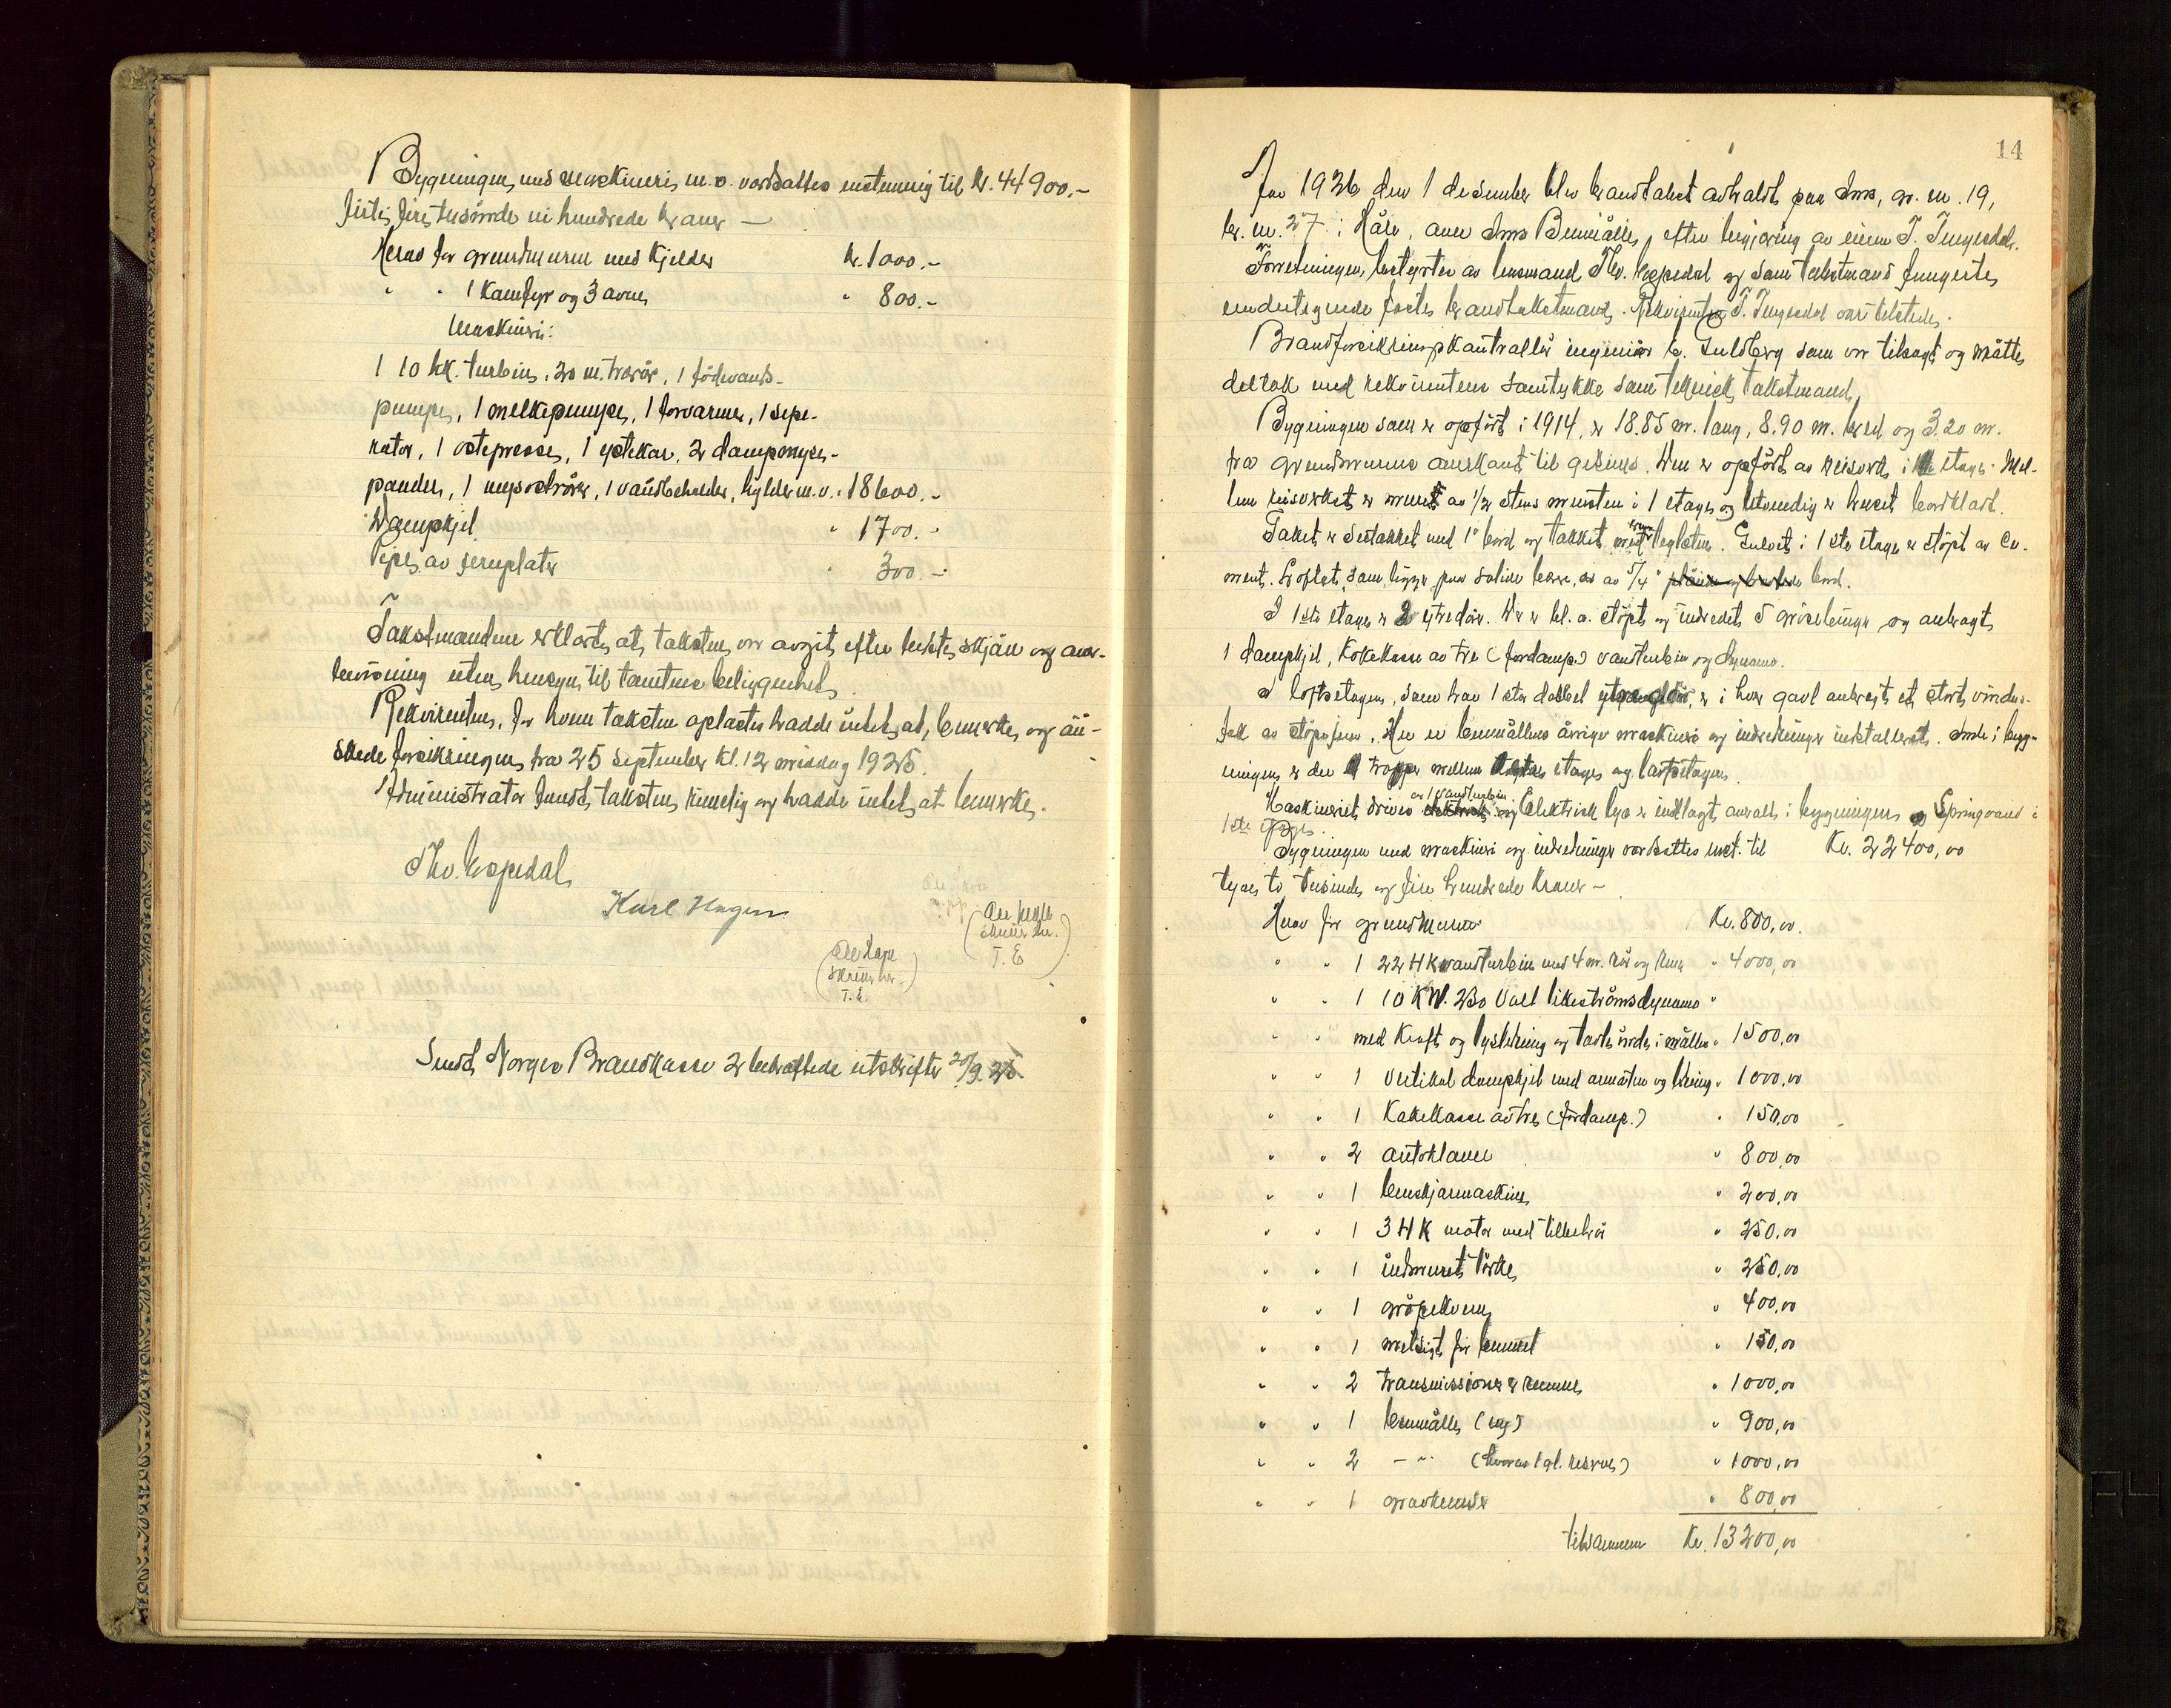 Bygningen med maskineri m.v. værdsattes enstemmig til kr. 44900.-
firti fire tusinde ni hundrede kroner —
Herav for grundmuren med kjelder kr. 1000.-
" " 1 Kamfyr og 3 ovner " 800.-
Maskineri:
1 10 hk. turbin, 20 m. trærør, 1 fødevands-
pumpe, 1 melkepumpe, 1 forvarmer, 1 sepe-
rator, 1 ostepresse, 1 ystekar, 2 dampmyse-
pander, 1 myserører, 1 vandbeholder, hylder m.v. " 18600.-
Dampkjel " 1700.-
Pipe av jernplater " 300.-
Takstmændene erklærte, at taksten var avgit efter bedste skjøn og over-
bevisning uten hensyn til tomtens beliggenhet.
Rekvirenten, for hvem taksten oplæstes hadde intet at bemerke og øn-
skede forsikringen fra 25 september kl. 12 middag 1925.
Administrator fandt taksten rimelig og hadde intet at bemerke.
Thv. Espedal
Karl Hagen
T. E
T. E.
Sendt Norges Brandkasse 2 bekræftede utskrifter 20/9. 25.
14
Aar 1926 den 1 desember blev brandtakst avholdt paa Ims, gr. nr. 19,
br. nr. 27 i Håle, over Ims Benmølle, efter begjæring av eieren T. Tengesdal.
Forretningen bestyrtes av lensmand Thv. Espedal og som takstmænd fungerte
undertegnede faste brandtakstmænd. Rekvirenten T. Tengesdal var tilstede.
Brandforsikringskontrollør ingeniør C. Guldberg som var tilsagt og møtte,
deltok med rekvirentens samtykke som teknisk takstmand.
Bygningen som er opført i 1914, er 18.85 m. lang, 8.90 m. bred og 3.20 m.
fra grundmurens overkant til gesims. Den er opført av reisverk i etage. Mel-
lem reisverket er muret av 1/2 stens mursten i 1 etage og utvendig er huset bordklædt.
Taket er sutakket med 1" bord og tækket med teglsten. Gulvet i 1ste etage er støpt av Ce-
ment. Loftet, som ligger paa solide bærere, er av 5/4" bord.
I 1ste etage er 2 ytredører. Der er bl. a. støpt og indredet 5 grisebinger og anbragt
1 dampkjel, Kokekasse av tre (for damp) vandturbin og dynamo.
I loftsetagen, som har 1 stor dobbel ytredør, er i hver gavl anbragt et stort vindus-
felt av støpejern. Her er benmøllens øvrige maskineri og indretninger installeret. Inde i byg-
ningen er der trapper mellem etage og loftsetagen.
Maskineriet drives av 1 vandturbin. Elektrisk lys er indlagt overalt i bygningen og Springvand i
1ste etage.
Bygningen med maskineri og indretninger værdsattes enst. til Kr. 22400,00
tyve to tusinde og fire hundrede kroner —
Herav for grundmuren Kr. 800,00.
" " 1 22 HK vandturbin med 4 m. rør og " 4000,00
" " 1 10 KW. 230 Volt likestrømsdynamo "
" " med Kraft og lysledning og tavle inde i møllen " 1500,00
" " 1 vertikal dampkjel med armatur og ledning " 1000,00
" " 1 Kokekasse av tre (for damp.) " 150,00
" " 2 autoklaver " 800,00
" " 1 benskjærmaskin " 200,00
" " 1 3 HK motor med tilbehør " 250,00
" " 1 indmuret tørke " 250,00
" " 1 grøpekvern " 400,00
" " 1 melsigt for benmel " 150,00
" " 2 transmissioner & remmer " 1000,00
" " 1 benmølle (ny) " 900,00
" " 2 -"- (hvorav 1 gl. reserve) " 1000,00
" " 1 " 800,00
tilsammen Kr. 13200,00